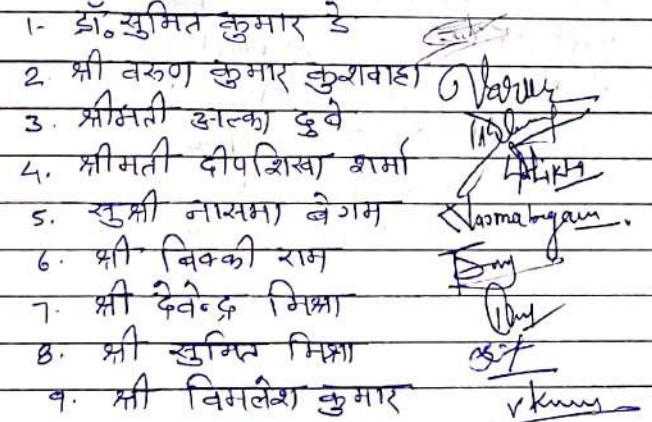 1- डॉ. सुमित कुमार डे
2 श्री वरुण कुमार कुशवाहा Varun
3. श्रीमती अल्का दुबे
4. श्रीमती दीपशिखा शर्मा
5. सुश्री नासमा बेगम Nasmabegam.
6. श्री बिक्की राम
7. श्री देवेन्द्र मिश्रा
8. श्री सुमित मिश्रा
9. श्री विमलेश कुमार vkumar